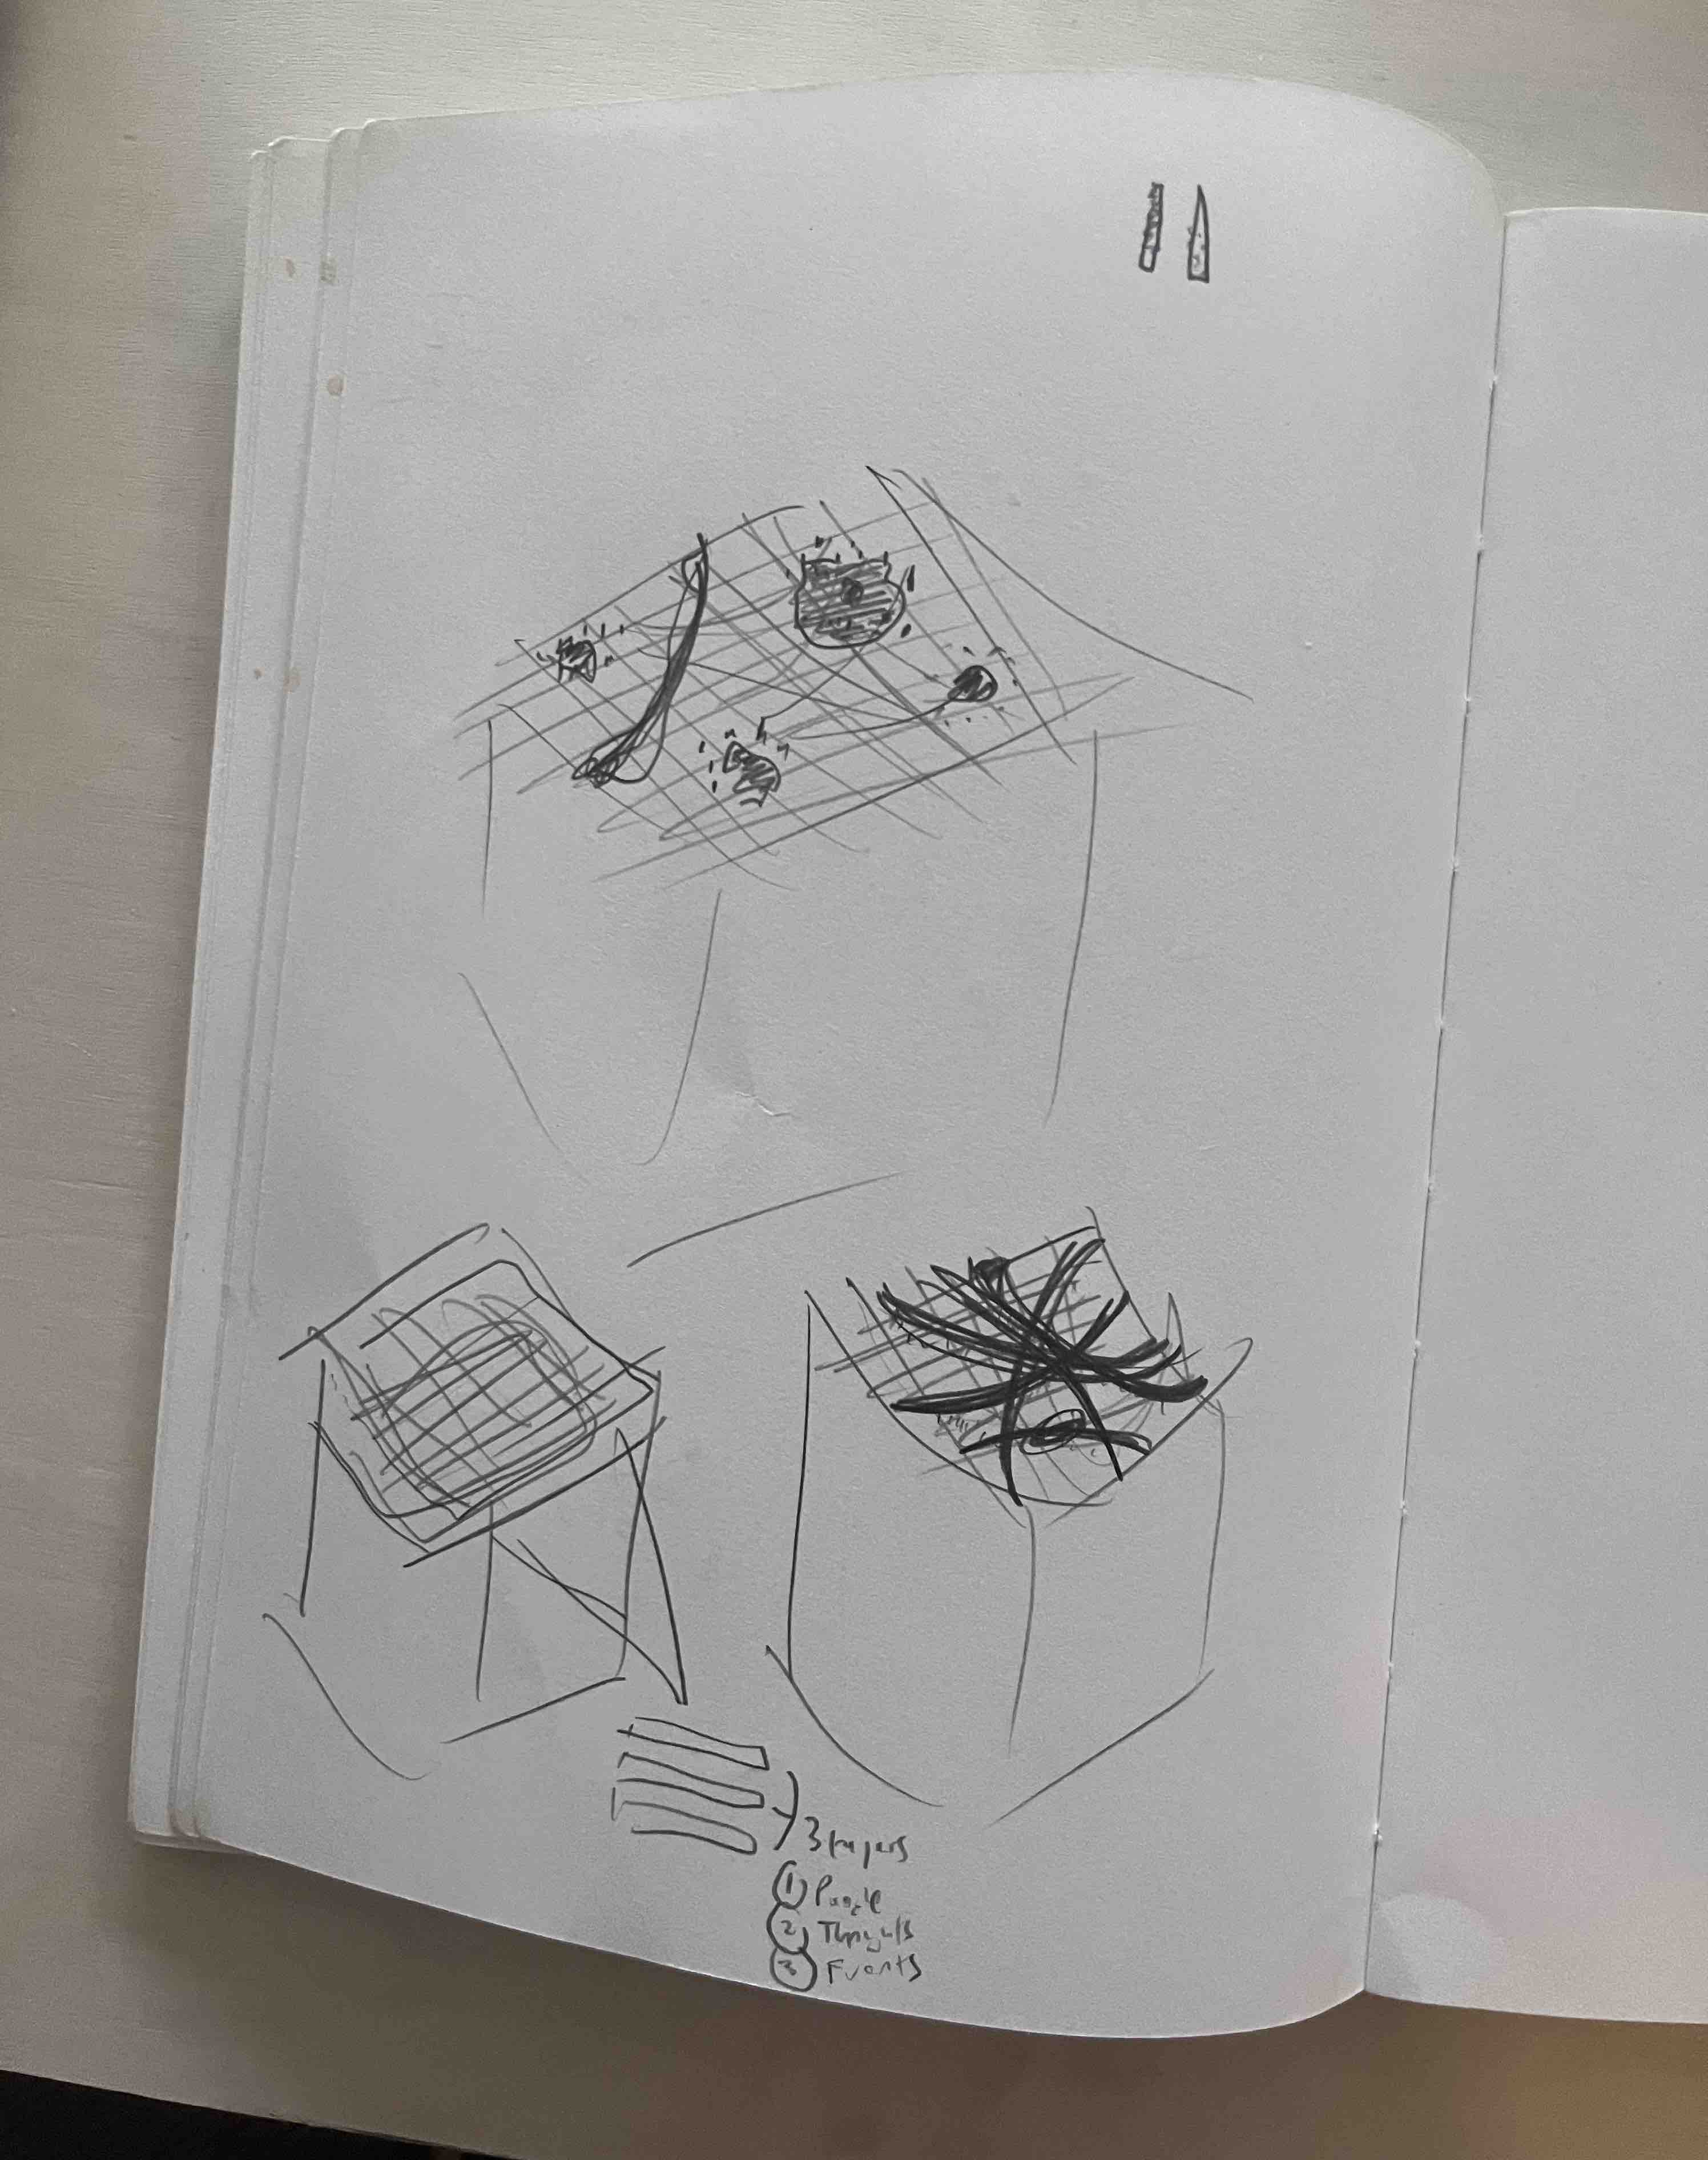 3 layers
① People
② Thoughts
③ Events